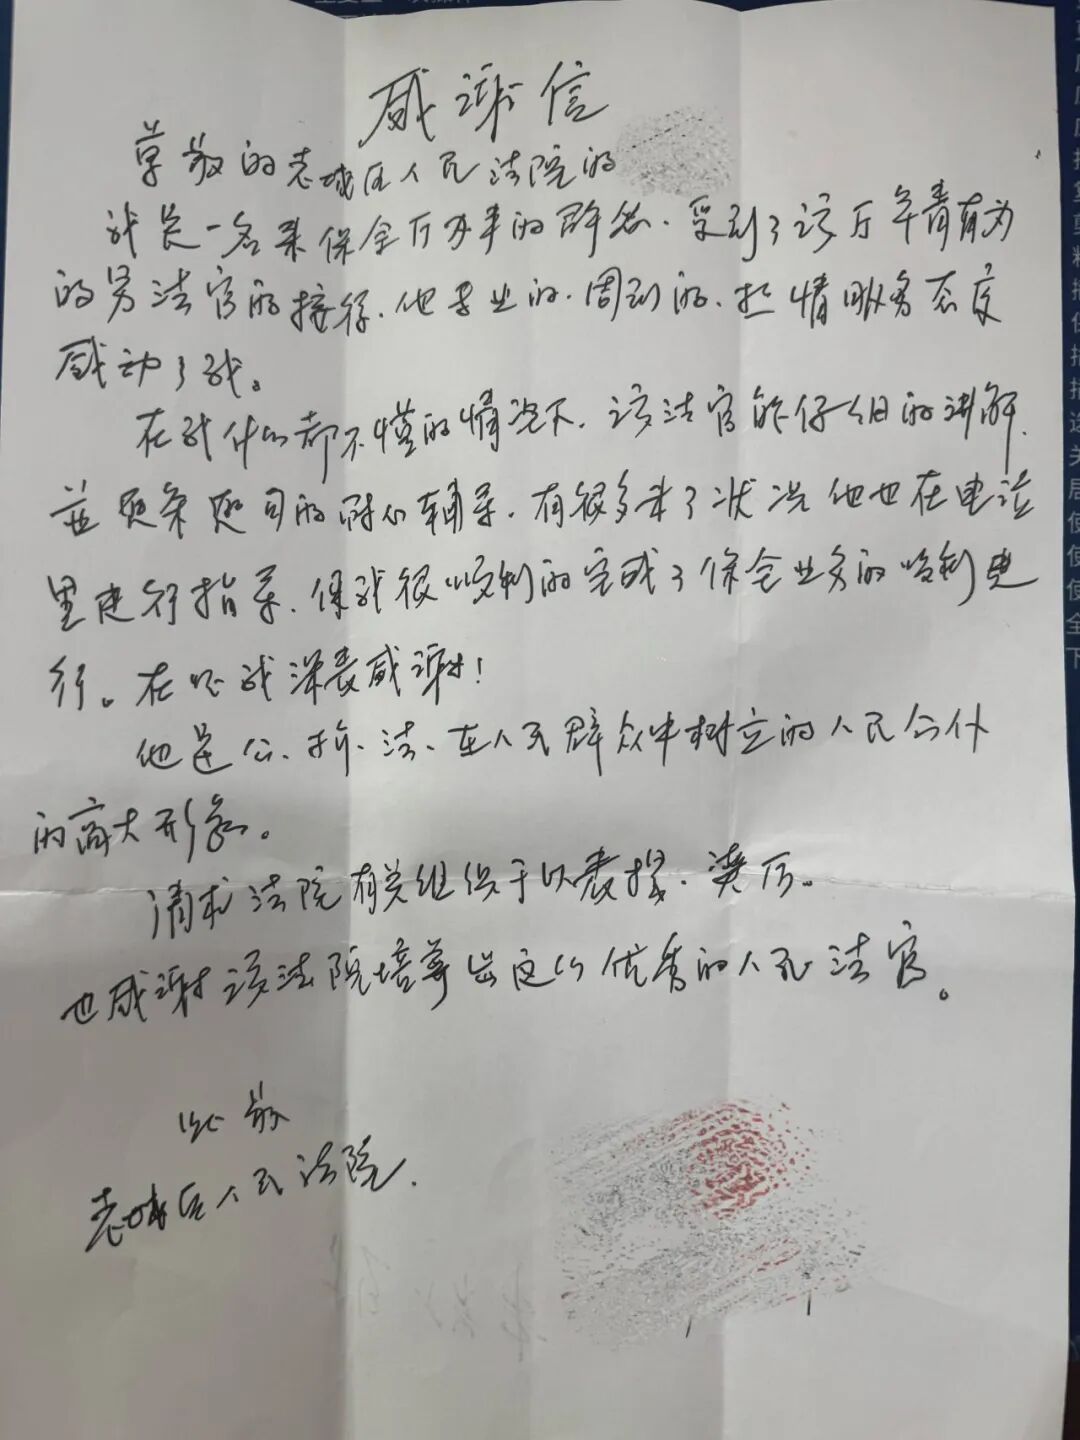 感谢信
尊敬的老城区人民法院的
我是一名来保全厅办事的群众、受到了该厅年青有为
的男法官的接待、他专业的、周到的、热情服务态度
感动了我。
在我什么都不懂的情况下、该法官能仔细的讲解、
并逐条逐句的耐心辅导、有很多来了状况他也在电话
里进行指导、使我很顺利的完成了保全业务的顺利进
行。在此我深表感谢！
他是公、检、法、在人民群众中树立的人民公仆
的高大形象。
请求法院有关组织予以表扬、奖历。
也感谢该法院培养出这么优秀的人民法官。
此敬
老城区人民法院.